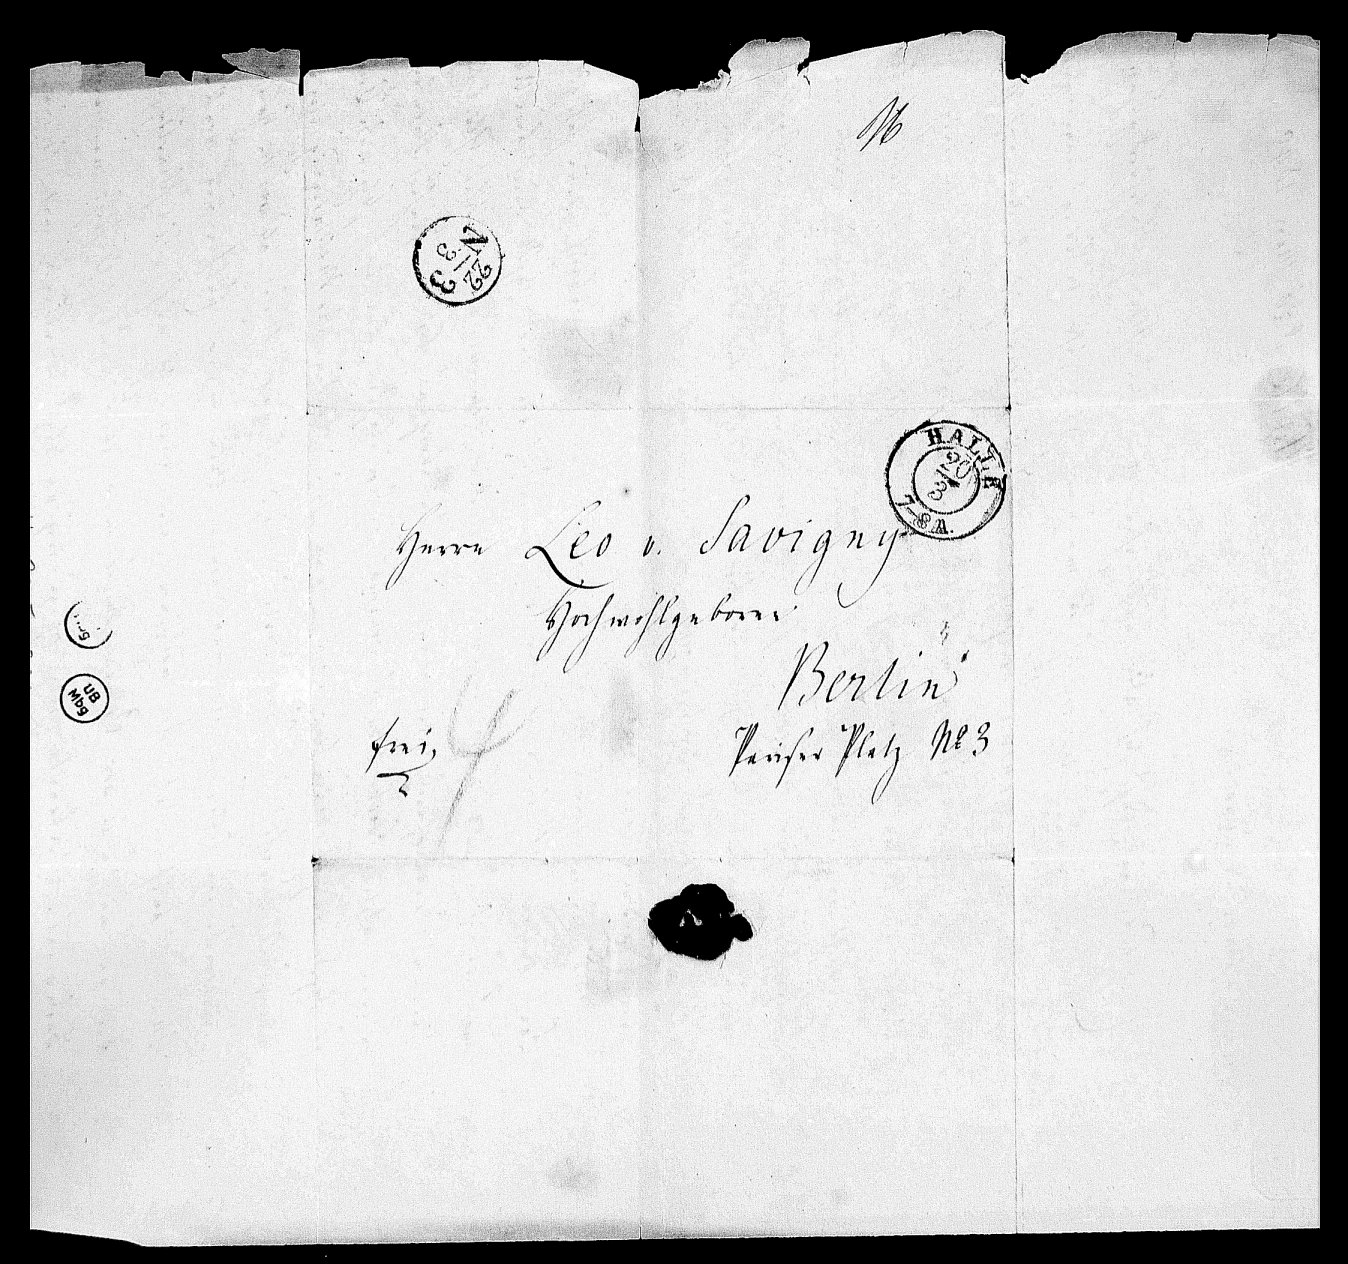 N
22/3
3
HALLE
20/3
7-8 N.
Herrn Leo v. Savigny
Hochwohlgeboren
Berlin
frei,
Pariser Platz No 3
UB
Mbg